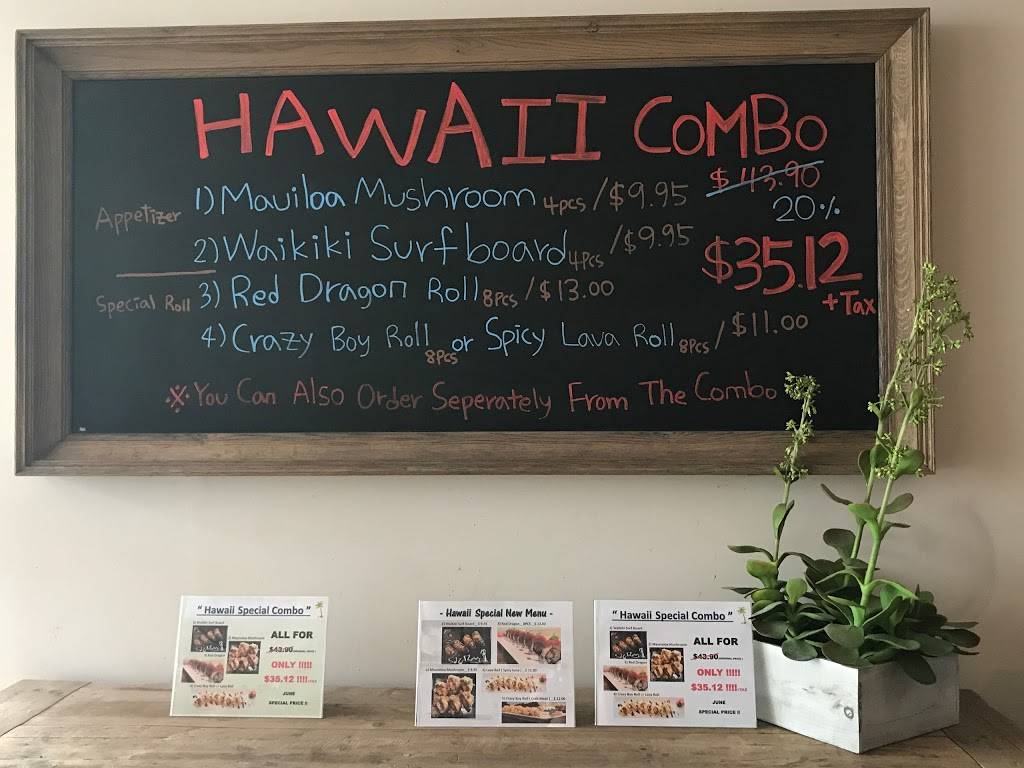 HAWAII COMBO
Appetizer
1) Mauiloa Mushroom 4pcs / $9.95
$43.90
20%
2) Waikiki Surfboard 4pcs / $9.95
$35.12
+ Tax
Special Roll
3) Red Dragon Roll 8pcs / $13.00
4) Crazy Boy Roll 8pcs or Spicy Lava Roll 8pcs / $11.00
※ You Can Also Order Seperately From The Combo
" Hawaii Special Combo "
ALL FOR
$43.90
ONLY !!!!!
$35.12 !!!!
JUNE
SPECIAL PRICE !!
- Hawaii Special New Menu -
" Hawaii Special Combo "
ALL FOR
$43.90
ONLY !!!!!
$35.12 !!!!
JUNE
SPECIAL PRICE !!